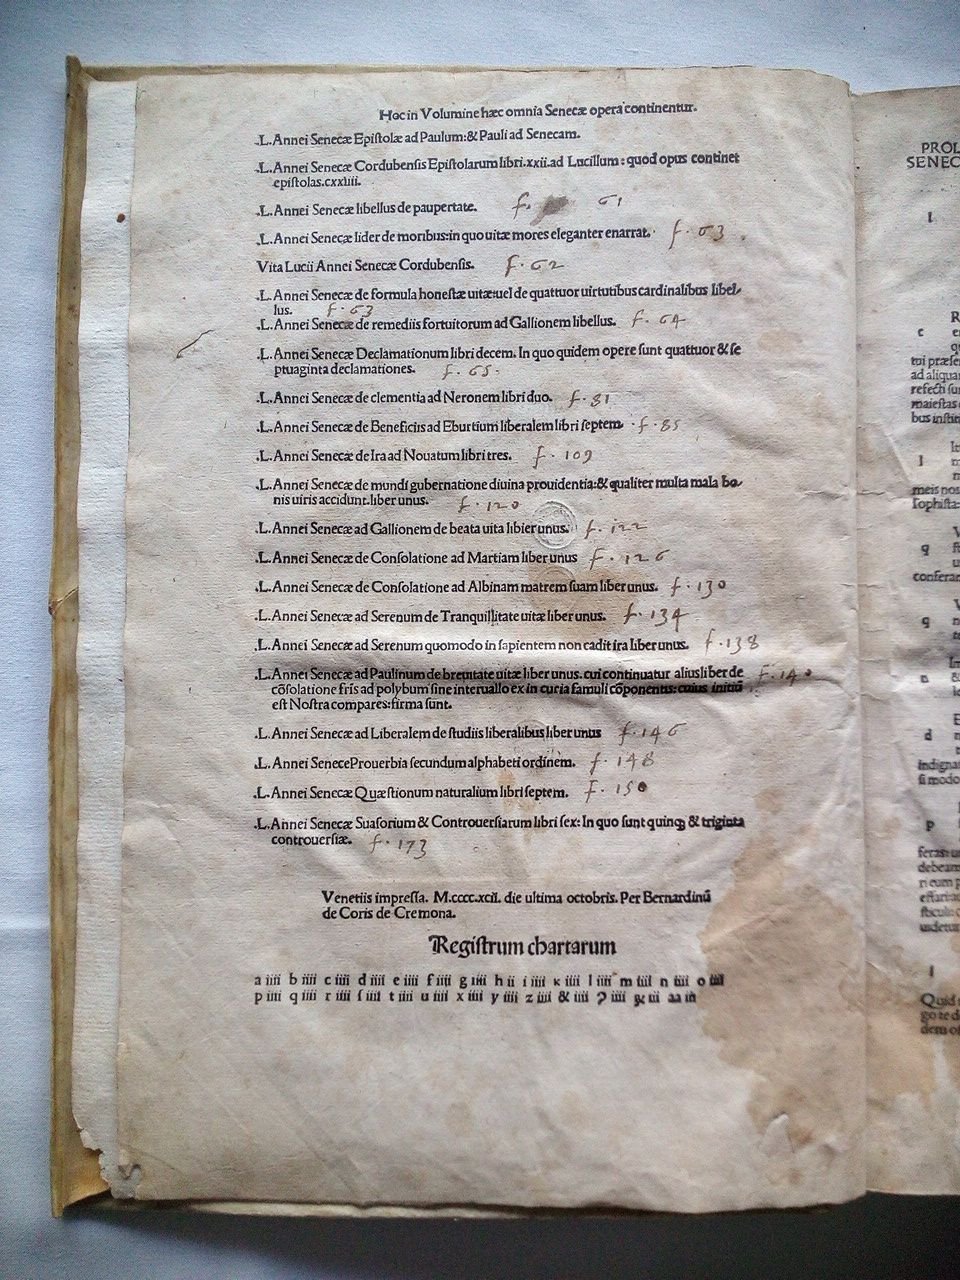 Hoc in Volumine hæc omnia Senecæ opera continentur.
.L. Annei Senecæ Epiſtolæ ad Paulum: & Pauli ad Senecam.
.L. Annei Senecæ Cordubenſis Epiſtolarum libri.xxii.ad Lucillum: quod opus continet
epiſtolas.cxxiiii.
.L. Annei Senecæ libellus de paupertate. f. 61
.L. Annei Senecæ lider de moribus: in quo uitæ mores eleganter enarrat. f. 63
Vita Lucii Annei Senecæ Cordubenſis. f. 62
.L. Annei Senecæ de formula honeſtæ uitæ: uel de quattuor uirtutibus cardinalibus libel-
lus. f. 63
.L. Annei Senecæ de remediis fortuitorum ad Gallionem libellus. f. 64
.L. Annei Senecæ Declamationum libri decem. In quo quidem opere ſunt quattuor & ſe
ptuaginta declamationes. f. 65.
.L. Annei Senecæ de clementia ad Neronem libri duo. f. 81
.L. Annei Senecæ de Beneficiis ad Eburtium liberalem libri ſeptem. f. 85
.L. Annei Senecæ de Ira ad Nouatum libri tres. f. 109
.L. Annei Senecæ de mundi gubernatione diuina prouidentia: & qualiter multa mala bo-
nis uiris accidunt. liber unus. f. 120
.L. Annei Senecæ ad Gallionem de beata uita libier unus. f. 122
.L. Annei Senecæ de Conſolatione ad Martiam liber unus f. 126
.L. Annei Senecæ de Conſolatione ad Albinam matrem ſuam liber unus. f. 130
.L. Annei Senecæ ad Serenum de Tranquillitate uitæ liber unus. f. 134
.L. Annei Senecæ ad Serenum quomodo in ſapientem non cadit ira liber unus. f. 138
.L. Annei Senecæ ad Paulinum de breuitate uitæ liber unus. cui continuatur alius liber de
cõſolatione fris ad polybum ſine interuallo ex in curia famuli cõponentis: cuius initiũ
eſt Noſtra compares: firma ſunt. f. 140
.L. Annei Senecæ ad Liberalem de ſtudiis liberalibus liber unus f. 146
.L. Annei Senece Prouerbia ſecundum alphabeti ordinem. f. 148
.L. Annei Senecæ Quæſtionum naturalium libri ſeptem. f. 150
.L. Annei Senecæ Suaſorium & Controuerſiarum libri ſex: In quo ſunt quinqꝫ & triginta
controuerſiæ. f. 173
Venetiis impreſſa. M.cccc.xcii. die ultima octobris. Per Bernardinũ
de Coris de Cremona.
Regiſtrum chartarum
a iiii b iiii c iiii d iiii e iiii f iiii g iiii h ii i iiii k iiii l iiii m iiii n iiii o iiii
p iiii q iiii r iiii ſ iiii t iiii u iiii x iiii y iiii z iiii & iiii ꝯ iiii ꝝ iii aa iii
PROL
SENEC